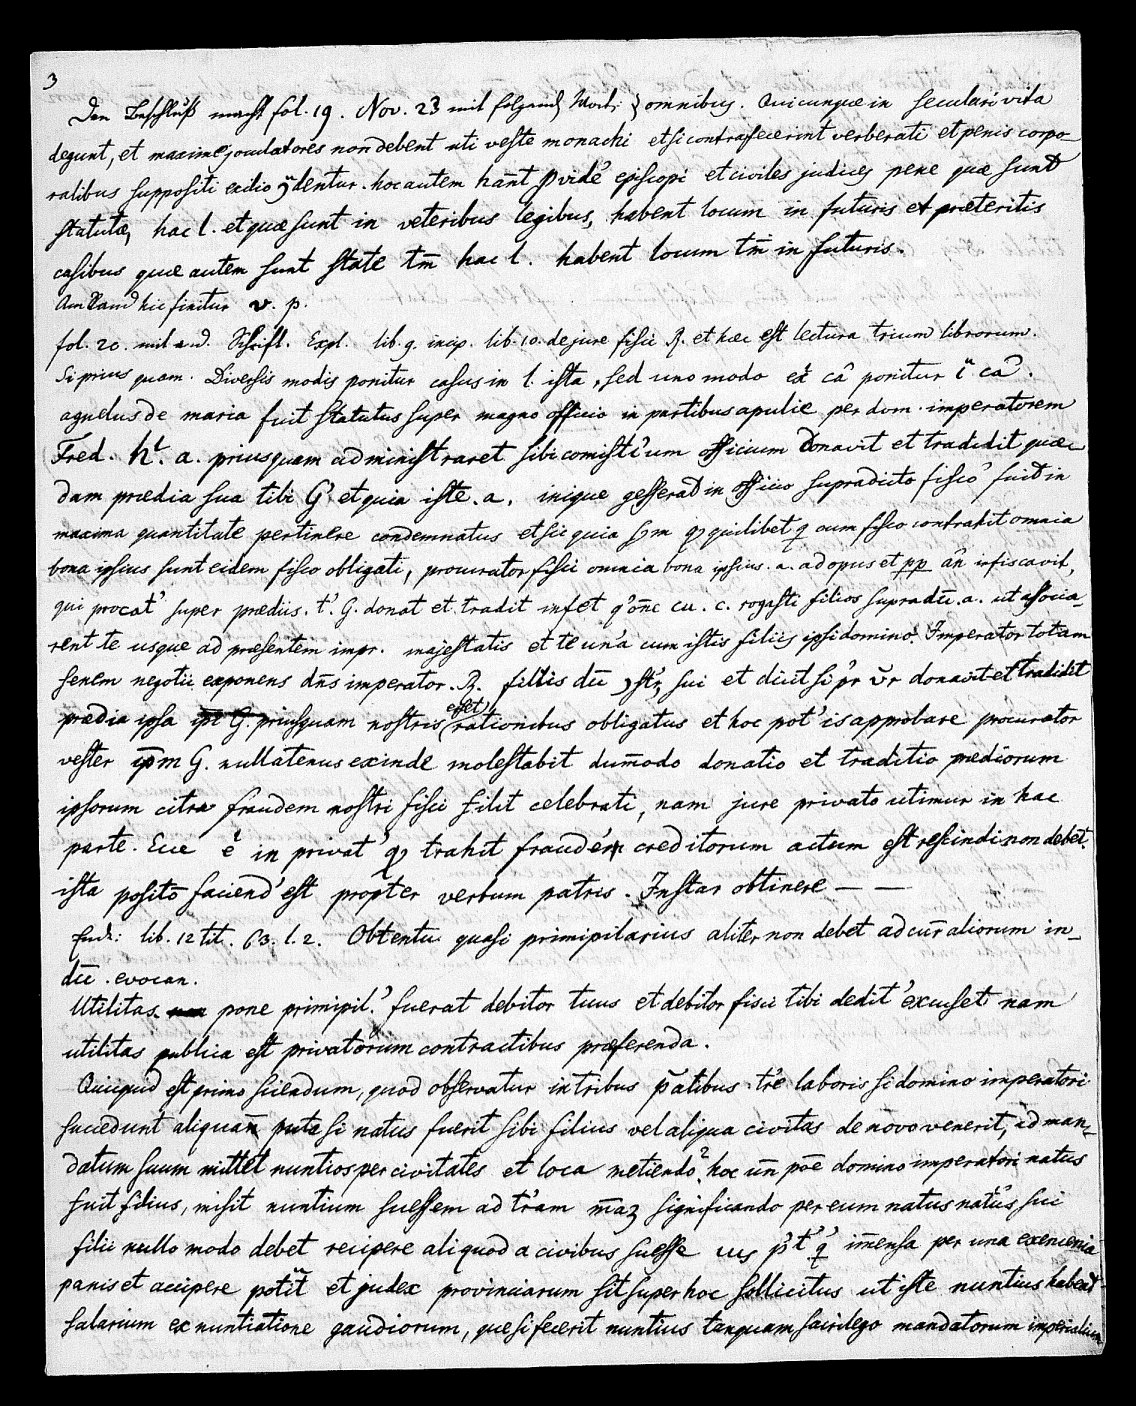 3
Den Beschluß macht fol. 19. Nov. 23 mit folgend Wort: omnibus. Quicunque in seculari vita
degunt, et maxime joculatores non debent uti veste monachi etsi contrafecerint verberati et penis corpo-
ralibus suppositi exilio dentur. hoc autem hāt pvide' episcopi et civiles judices pene quæ sunt
statutæ, hac l. et quæ sunt in veteribus legibus, habent locum in futuris et præteritis
casibus quæ autem sunt state tm̄ hac l. habent locum tm̄ in futuris.
Am Rand hic finitur v. p.
fol. 20. mit and. Schrift. Expl. lib. 9. incip. lib. 10. de jure fisci R. et hæc est lectura trium librorum.
Si prius quam. Diversis modis ponitur casus in l. ista, sed uno modo câ ponitur i câ.
agnelus de maria fuit statutus super magno officio in partibus apulie per dom. imperatorem
Fred. a. priusquam administraret sibi comisti'um officium donavit et tradidit quæ-
dam prædia sua tibi G' et quia iste. a. inique gesserat in officio supradicto fisco' fuit in
maxima quantitate pertinere condemnatus et sic quia quilibet q cum fisco contrahit omnia
bona ipsius sunt eidem fisco obligati, procurator fisci omnia bona ipsius. a. ad opus et pp an̄ infiscavit,
qui procat' super prædiis. t'. G. donat et tradit inf et cu. c. rogasti filios supradn̄. a. ut associa-
rent te usque ad præsentem impr. majestatis et te una cum istis filiis ipsi domino Imperator totam
senem negotii exponens dn̄s imperator. R. filiis dn̄ sui et dicit si donavit et tradidit
prædia ipsa priusquam nostris esset rationibus obligatus et hoc pot' is approbare procurator
vester ip̄m G. nullatenus exinde molestabit dum̄odo donatio et traditio prædiorum
ipsorum citra fraudem nostri fisci celebrati, nam jure privato utimur in hac
parte. Ecce in privat' trahit fraudem creditorum actum est rescindi non debet.
ista posito faciend' est propter verbum patris. Instar obtinere — —
Ende: lib. 12 tit. 63. l. 2. Obtentu quasi primipilarius aliter non debet ad cur̄ aliorum in-
dū. evocan.
Utilitas pone primipil'. fuerat debitor tuus et debitor fisci tibi dedit' excuset nam
utilitas publica est privatorum contractibus præferenda.
Quicquid est primo sciendum, quod observatur in tribus p̄atibus tr̄e laboris si domino imperatori
succedunt aliquan̄ puta si natus fuerit sibi filius vel aliqua civitas de novo venerit, ad man-
datum suum mittet nuntios per civitates et loca metiendo? hoc un̄ poe domino imperatori natus
fuit filius, misit nuntium suessem ad tr'am significando per eum natus natus sui
filii nullo modo debet recipere aliquod a civibus suesse im̄ensa per una exeniencia
panis et accipere potīt et judex provinciarum sit super hoc sollicitus ut iste nuntius habeat
salarium ex nuntiatione gaudiorum, quæ si fecerit nuntius tanquam sacrilego mandatorum imperialium